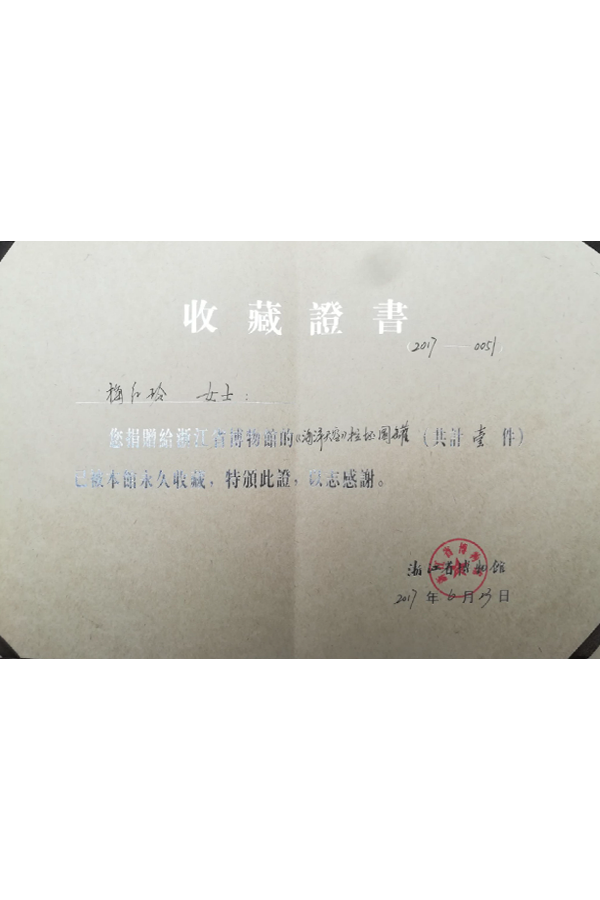 收藏證書
(2017——0051)
梅红玲 女士：
您捐贈給浙江省博物館的《海洋天容》粒坯圈罐（共計壹件）
已被本館永久收藏，特頒此證，以志感謝。
浙江省博物館
2017年6月23日